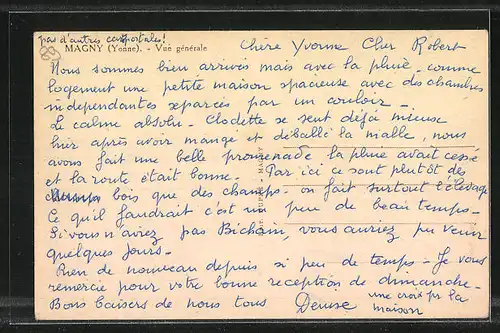 pas d'autres cartpostales!
89
MAGNY (Yonne). - Vue générale
Chère Yvonne Cher Robert
Nous sommes bien arrivés mais avec la pluie, comme
logement une petite maison spacieuse avec des chambres
independantes separces par un couloir -
Le calme absolu - Clodette se sent déjà mieux
hier après avoir mangé et déballé la malle, nous
avons fait une belle promenade la pluie avait cessé
et la route était bonne - Par ici ce sont plutôt des
bois que des champs - on fait surtout l'élevage
Ce qu'il faudrait c'est un peu de beau temps -
Si vous n'aviez pas Bichain, vous auriez pu venir
quelques jours -
Rien de nouveau depuis si peu de temps - Je vous
remercie pour votre bonne reception de dimanche -
Bons baisers de nous tous Denise
une croix pr la
maison
MAGNY